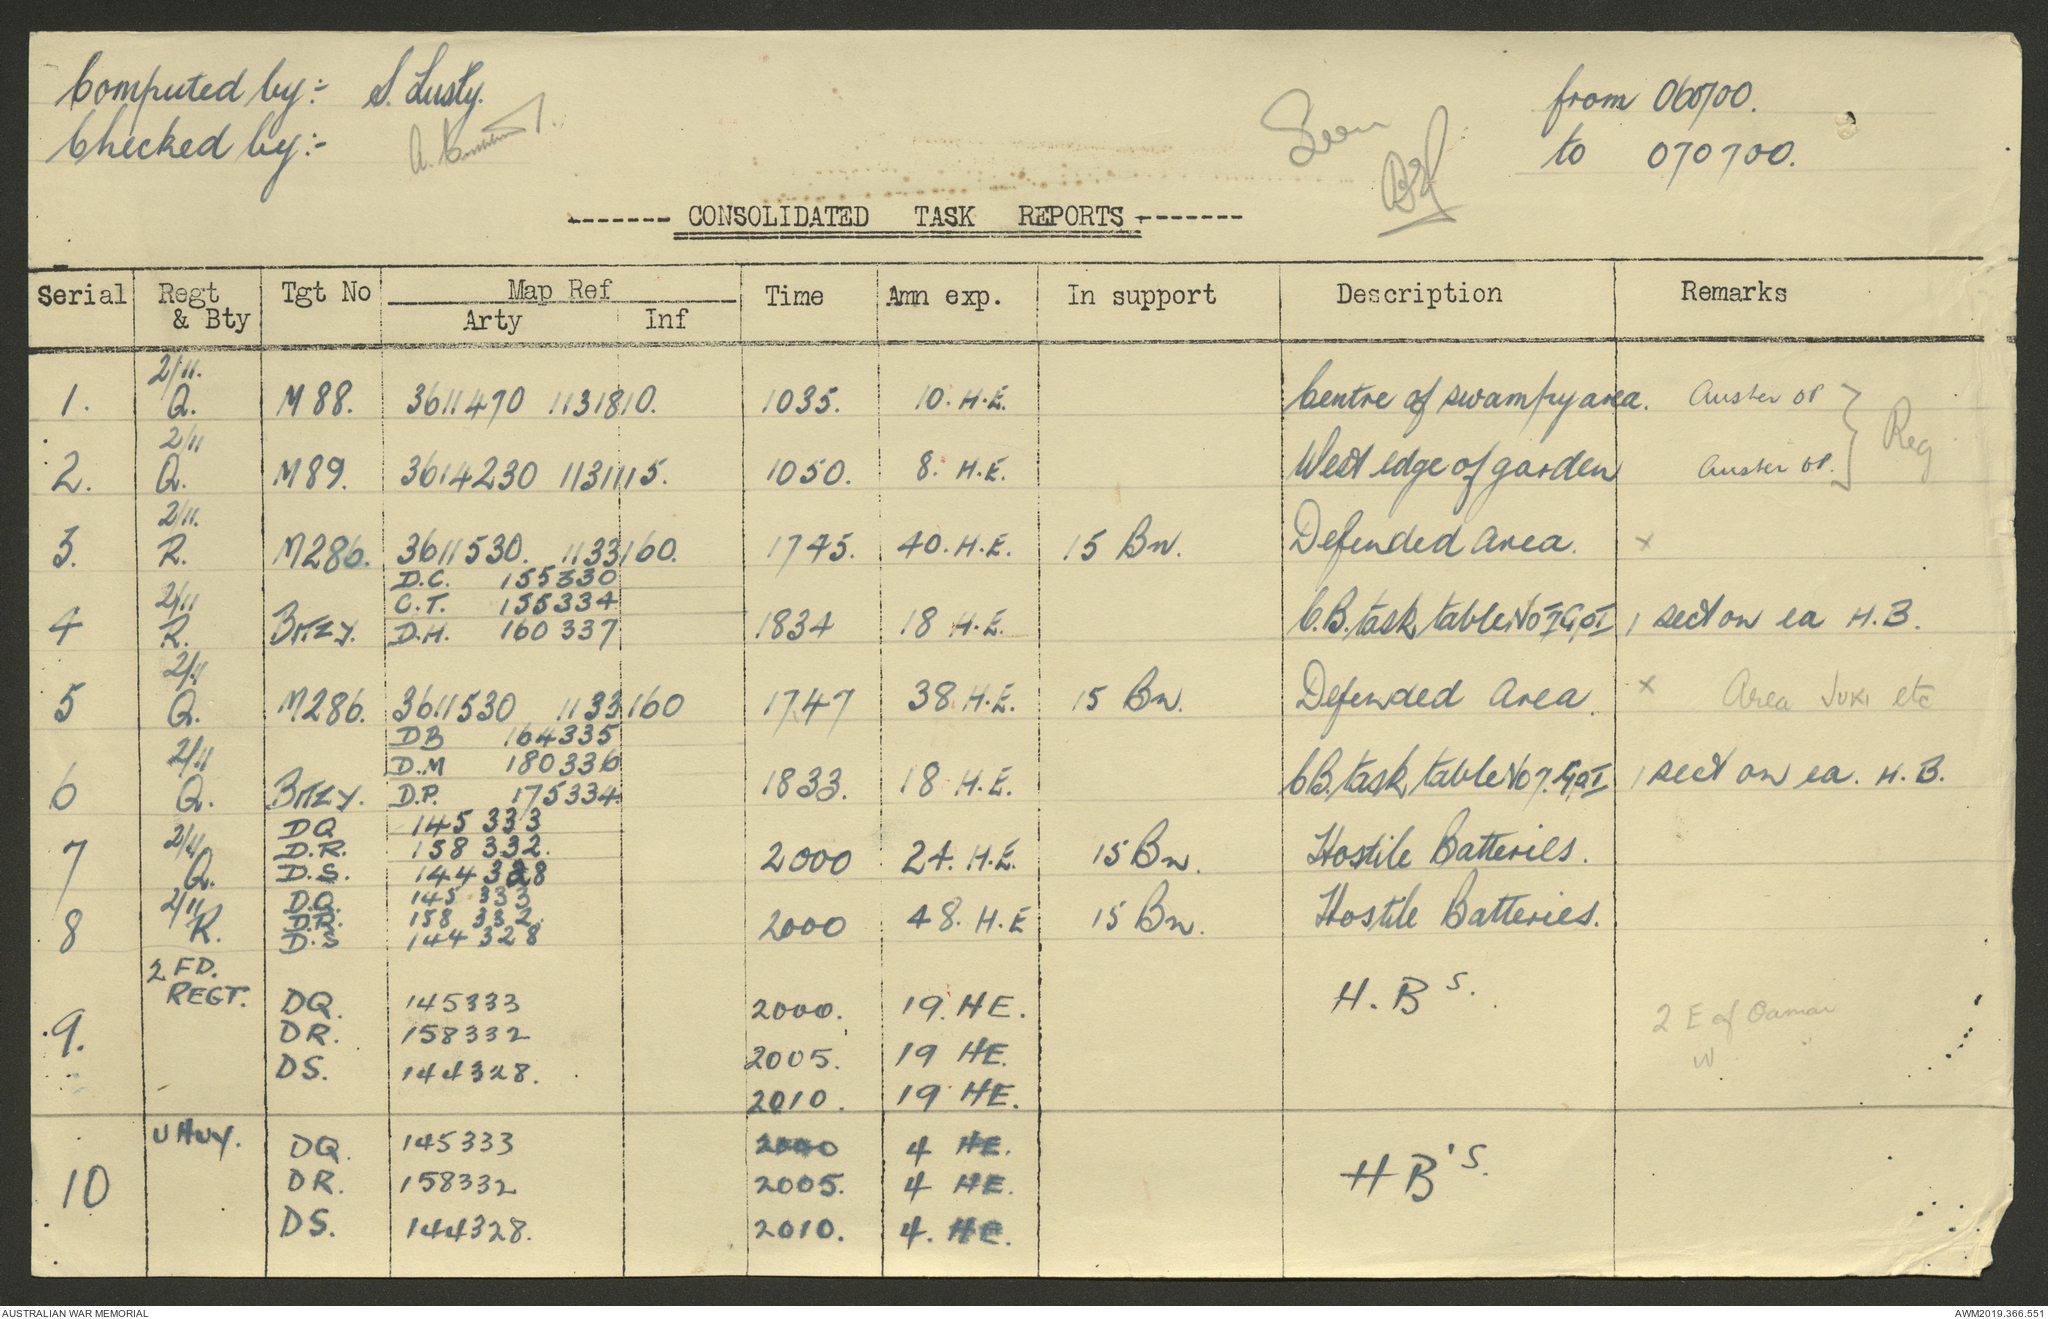 Computed by:- S. Lusty.
Checked by:-
Seen
from 060700.
to 070700.
------- CONSOLIDATED TASK REPORTS -------
Serial Regt & Bty Tgt No Map Ref Arty Inf Time Amn exp. In support Description Remarks
1. 2/11. Q. M 88. 3611470 1131810. 1035. 10. H.E. Centre of swampy area. Auster OP } Reg
2. 2/11 Q. M 89. 3614230 1131115. 1050. 8. H.E. West edge of garden Auster OP.
3. 2/11. R. M286. 3611530. 1133160. 1745. 40. H.E. 15 Bn. Defended area. x
D.C. 155330
C.T. 155334
4 2/11 R. D.H. 160337 1834 18 H.E. C.B. task table No 7 Gp I 1 sect on ea H.B.
5 2/11 Q. M286. 3611530 1133160 1747 38. H.E. 15 Bn. Defended area. x Area JUKI etc
DB 164335
D.M 180336
6 2/11 Q. D.P. 175334. 1833. 18 H.E. C.B. task table No 7. Gp I 1 sect on ea. H.B.
DQ 145 333
D.R. 158 332.
7 2/11 Q. D.S. 144 328 2000 24. H.E. 15 Bn. Hostile Batteries.
D.Q. 145 333
D.R. 158 332.
8 2/11 R. D.S 144 328 2000 48. H.E 15 Bn. Hostile Batteries.
9. 2 FD. REGT. DQ. 145333 2000. 19. HE. H.B's.
DR. 158332 2005. 19 HE. 2 E of Oamar
DS. 144328. 2010. 19 HE. W "
10 U Hvy. DQ. 145333 2000 4 HE. HB's.
DR. 158332 2005. 4 HE.
DS. 144328. 2010. 4. HE.
AUSTRALIAN WAR MEMORIAL
AWM2019.366.551